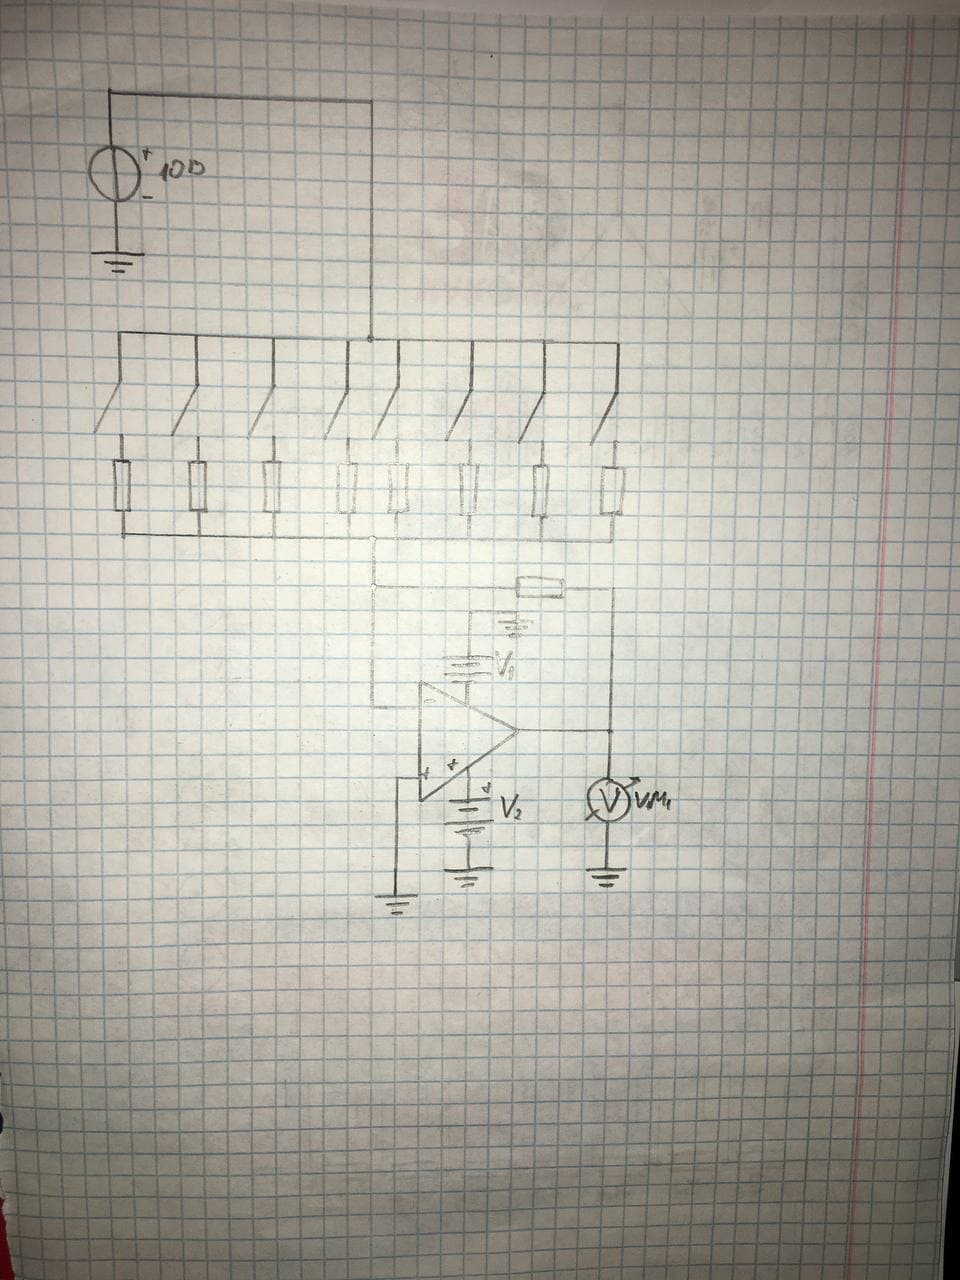 +
100
-
V₁
-
+
+
+
V₂
V
VM₁